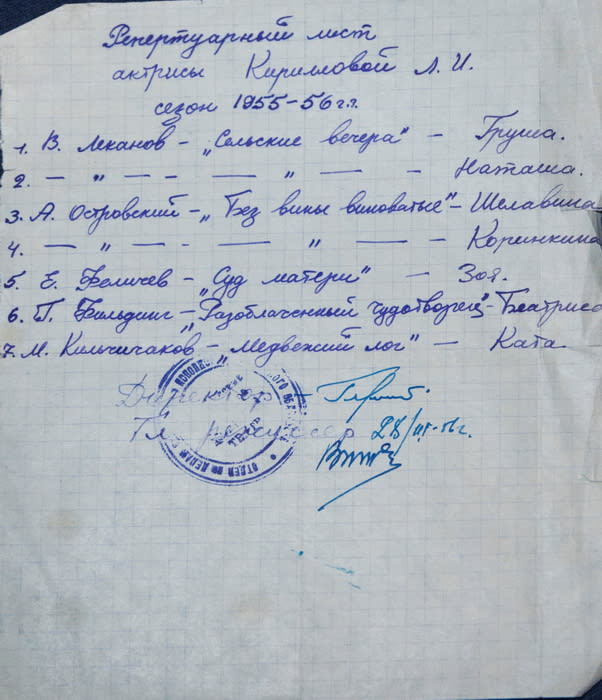 Репертуарный лист
актрисы Кирилловой Л. И.
сезон 1955-56 г.г.
1. В. Леканов - „Сельские вечера" - Груша.
2. — " — - — " — - Наташа.
3. А. Островский - „Без вины виноватые" - Шелавина
4. — " — - — " — - Коринкина
5. Е. Фоличев - „Суд матери" - Зоя.
6. Г. Фильдинг - „Разоблаченный чудотворец" - Беатриса
7. М. Кильчичаков - „Медвежий лог" - Ката
Директор -
Гл. режиссер 28/III-56г.
ТЕАТР
ОТДЕЛ ПО ДЕЛАМ